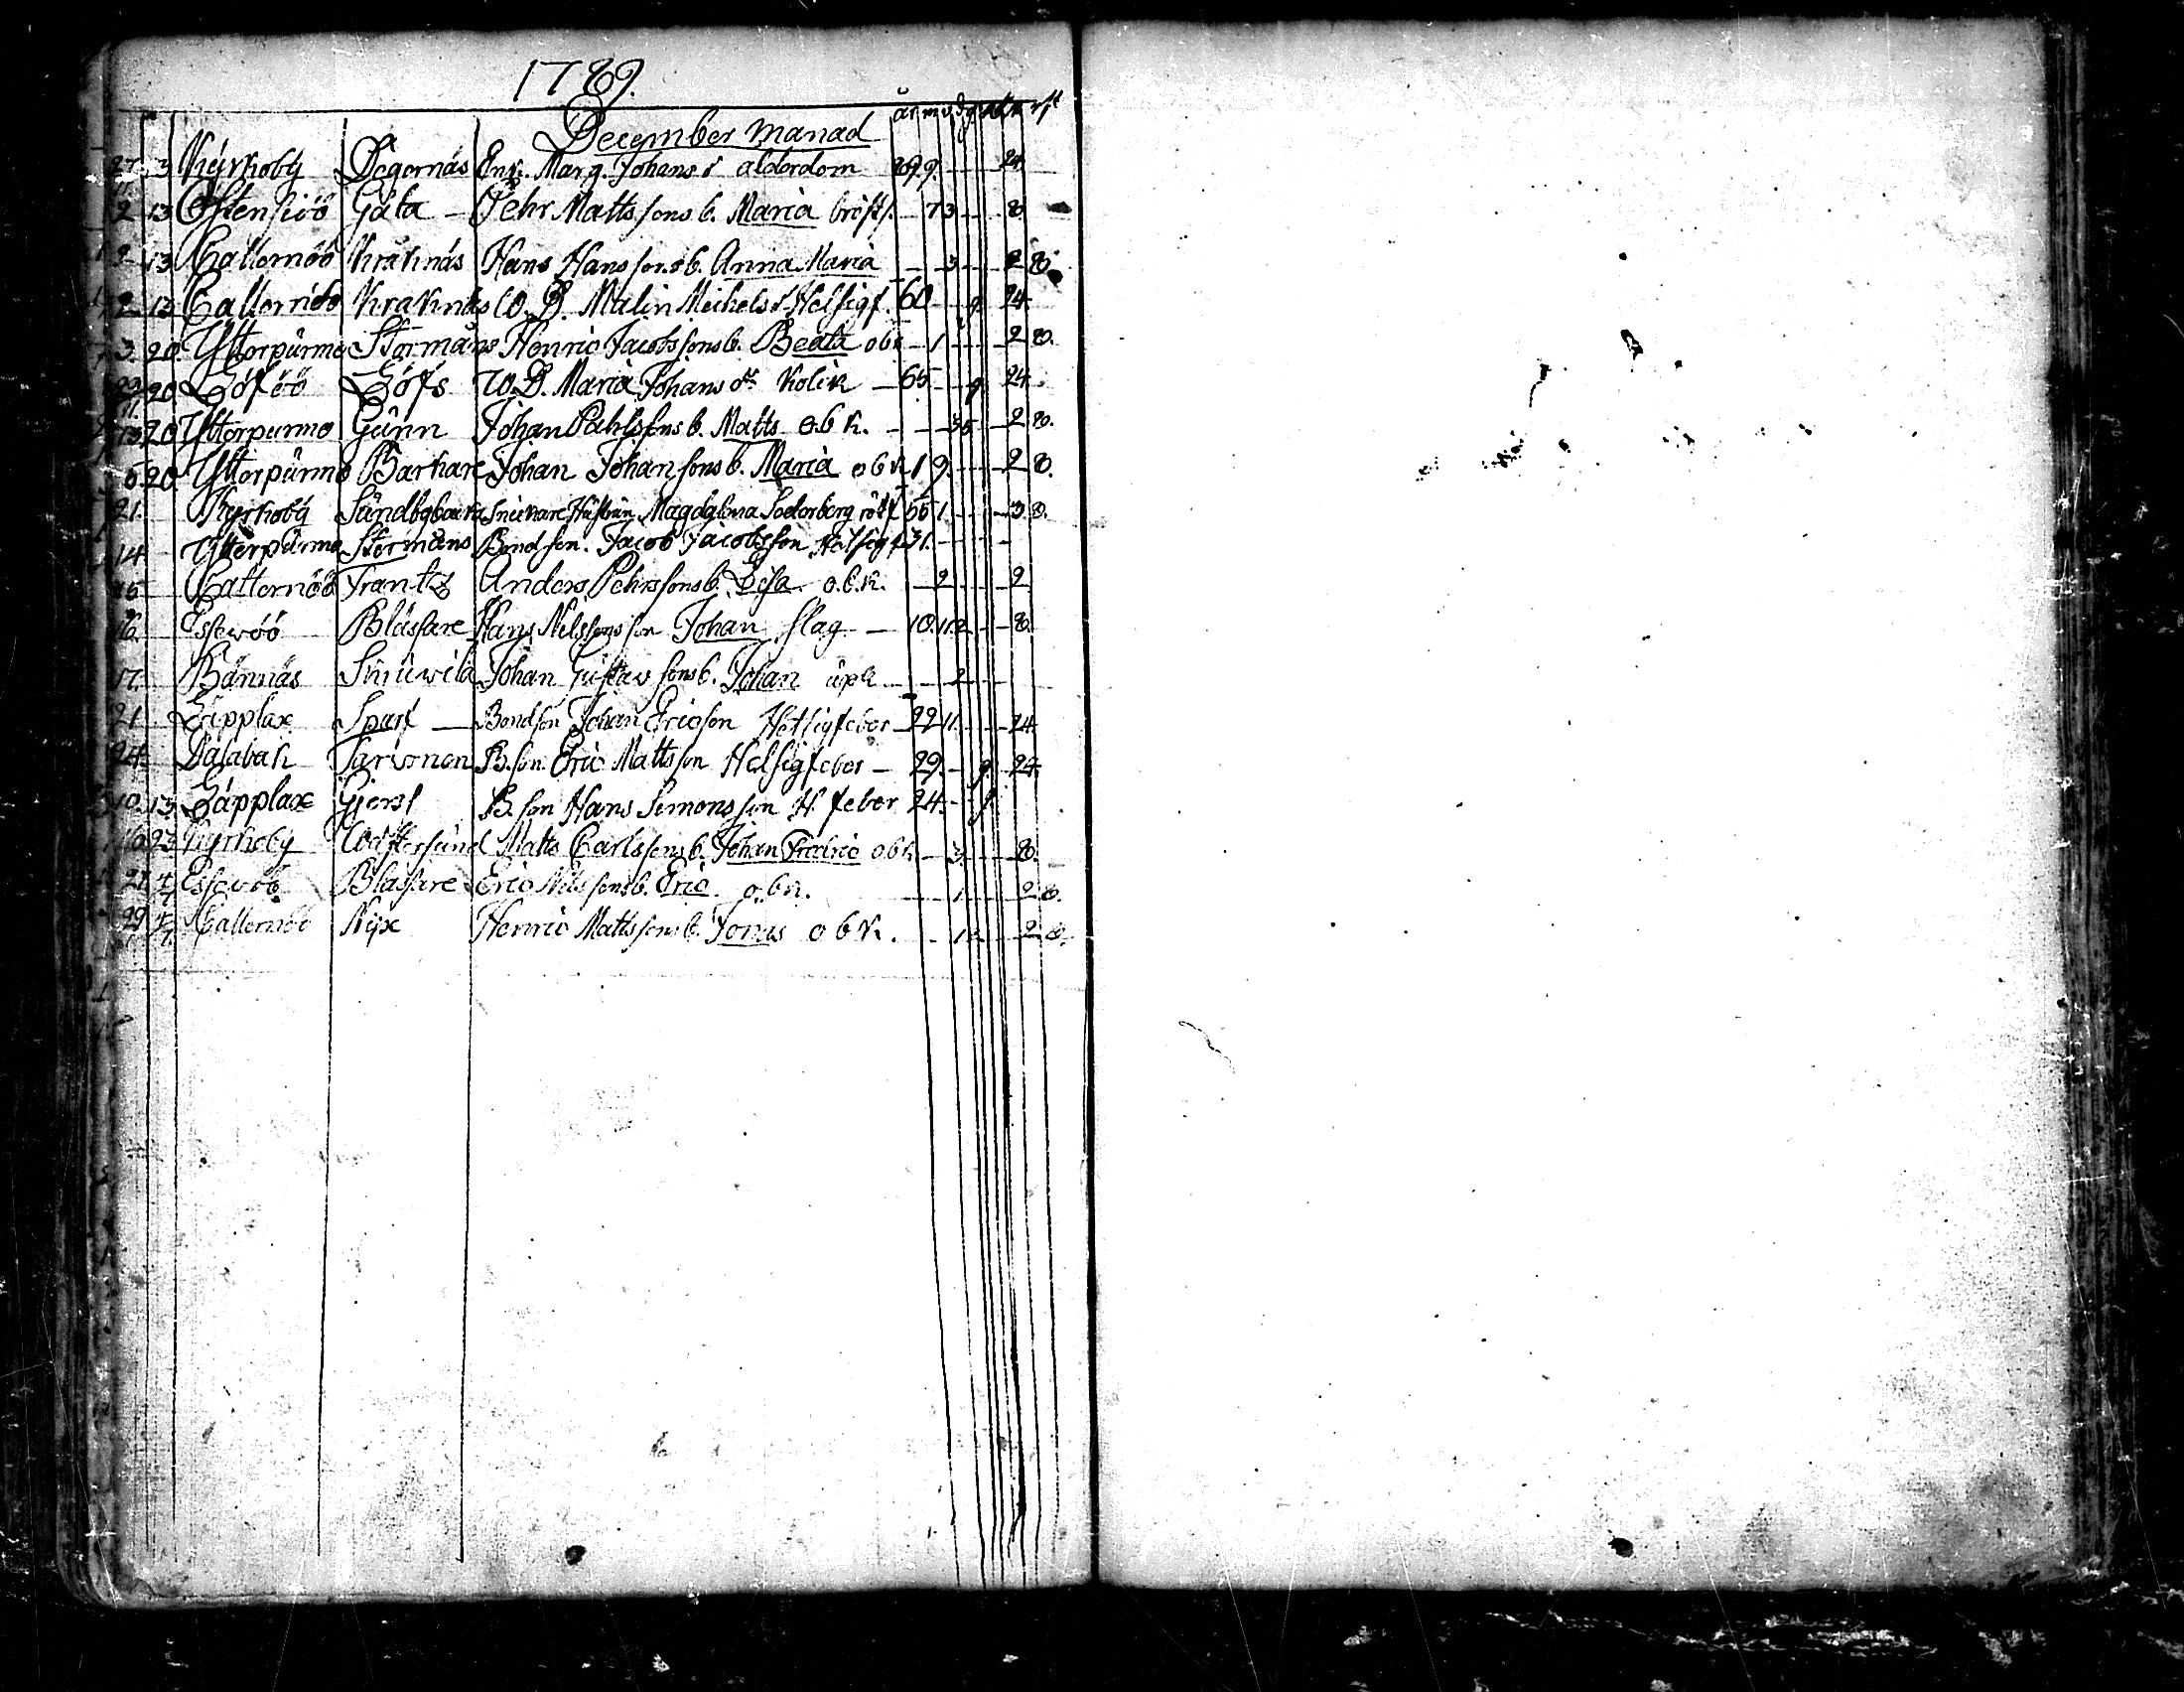 1789.
December manad
år m v d g
27 3 Kyrkoby Degernäs Enk. Marg. Johans d alderdom 89 9 24
2 13 Östensiöö Gäta Pehr Mattssons b. Maria bröstf. 7 3 8
2 13 Kallernöö Kråknäs Hans Hanssons b. Anna Maria 3 2 8.
2 13 Kallernöö Kraknäs W. D. Malin Michels d Hetsigf. 60 g 24
3. 20. Ytterpurmo Stormåns Henric Jacobssons b. Beata obk 1 2 8.
29 20 Löföö Löfs W. D. Maria Johans dr Kolik 65 g 24
13 20 Ytterpurmo Gunn Johan Pahlssons b. Matts obk. 3 5 2 8.
6 20 Ytterpurmo Barkare Johan Johanssons b. Maria obk 1 9 2 8.
21. Kyrkoby Sundbybacka Snickare Hustrun Magdalena Soderberg rötf 55 1 3 8.
14 Ytterpurmo Stormåns Bondson. Jacob Jacobsson Hetsigf 31.
15 Kallernöö Frantz Anders Pehrssons b. Lisa o.b.k. 2 2
16. Essewöö Blåsare Hans Nilssons son Johan slag 10 11 2 8.
17. Bännäs Snuwila Johan Gustavssons b. Johan upk 2
21 Läpplax Sparf Bondson Johan Ericson Hetsigfeber 22 11 24
24. Dalabak Sarvonen B. son. Eric Mattsson Hetsigfeber 29. g. 24
10. 13. Läpplax Gjers B. son Hans Simonsson H. feber 24. g
16 23 Kyrkoby Wästersund Matts Carlssons b. Johan Fredric obk 3. 8.
21 Essewöö Blåsare Eric Nilssons b. Eric o.b.k. 1 2 8.
29 Kallernöö Nyx Henric Mattssons b. Jonas obk. 1 2 2 8.